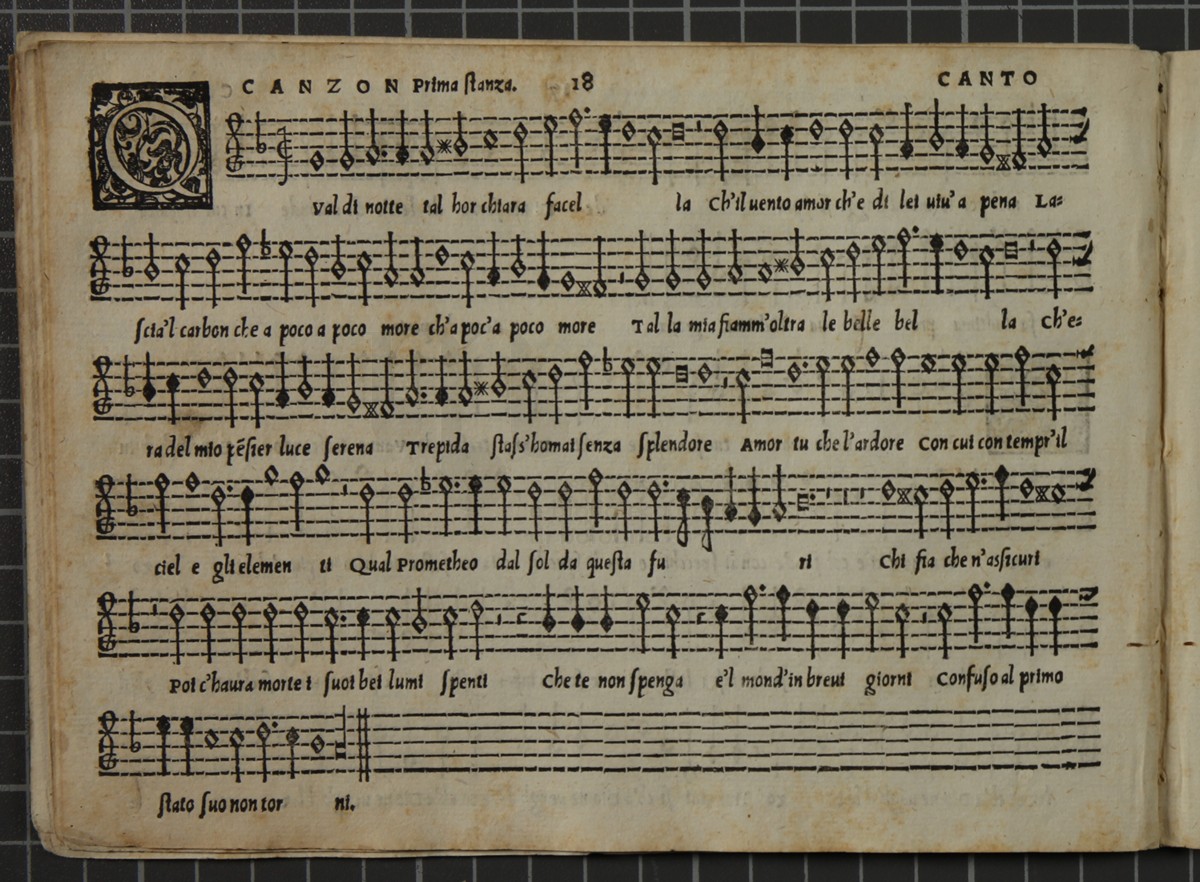 CANZON Prima ſtanza. 18 CANTO
Q
val di notte tal hor chiara facel la Ch'il uento amor ch'e di lei uiu'a pena La-
ſcia'l carbon che a poco a poco more ch'a poc'a poco more Tal la mia fiamm'oltra le belle bel la Ch'e-
ra del mio pēſier luce ſerena Trepida ſtaſs'homai ſenza ſplendore Amor tu che l'ardore Con cui con tempr'il
ciel e gli elemen ti Qual Prometheo dal ſol da queſta fu ri Chi fia che n'aſsicuri
Poi c'haura morte i ſuoi bei lumi ſpenti Che te non ſpenga e'l mond'in breui giorni Confuſo al primo
ſtato ſuo non tor ni.